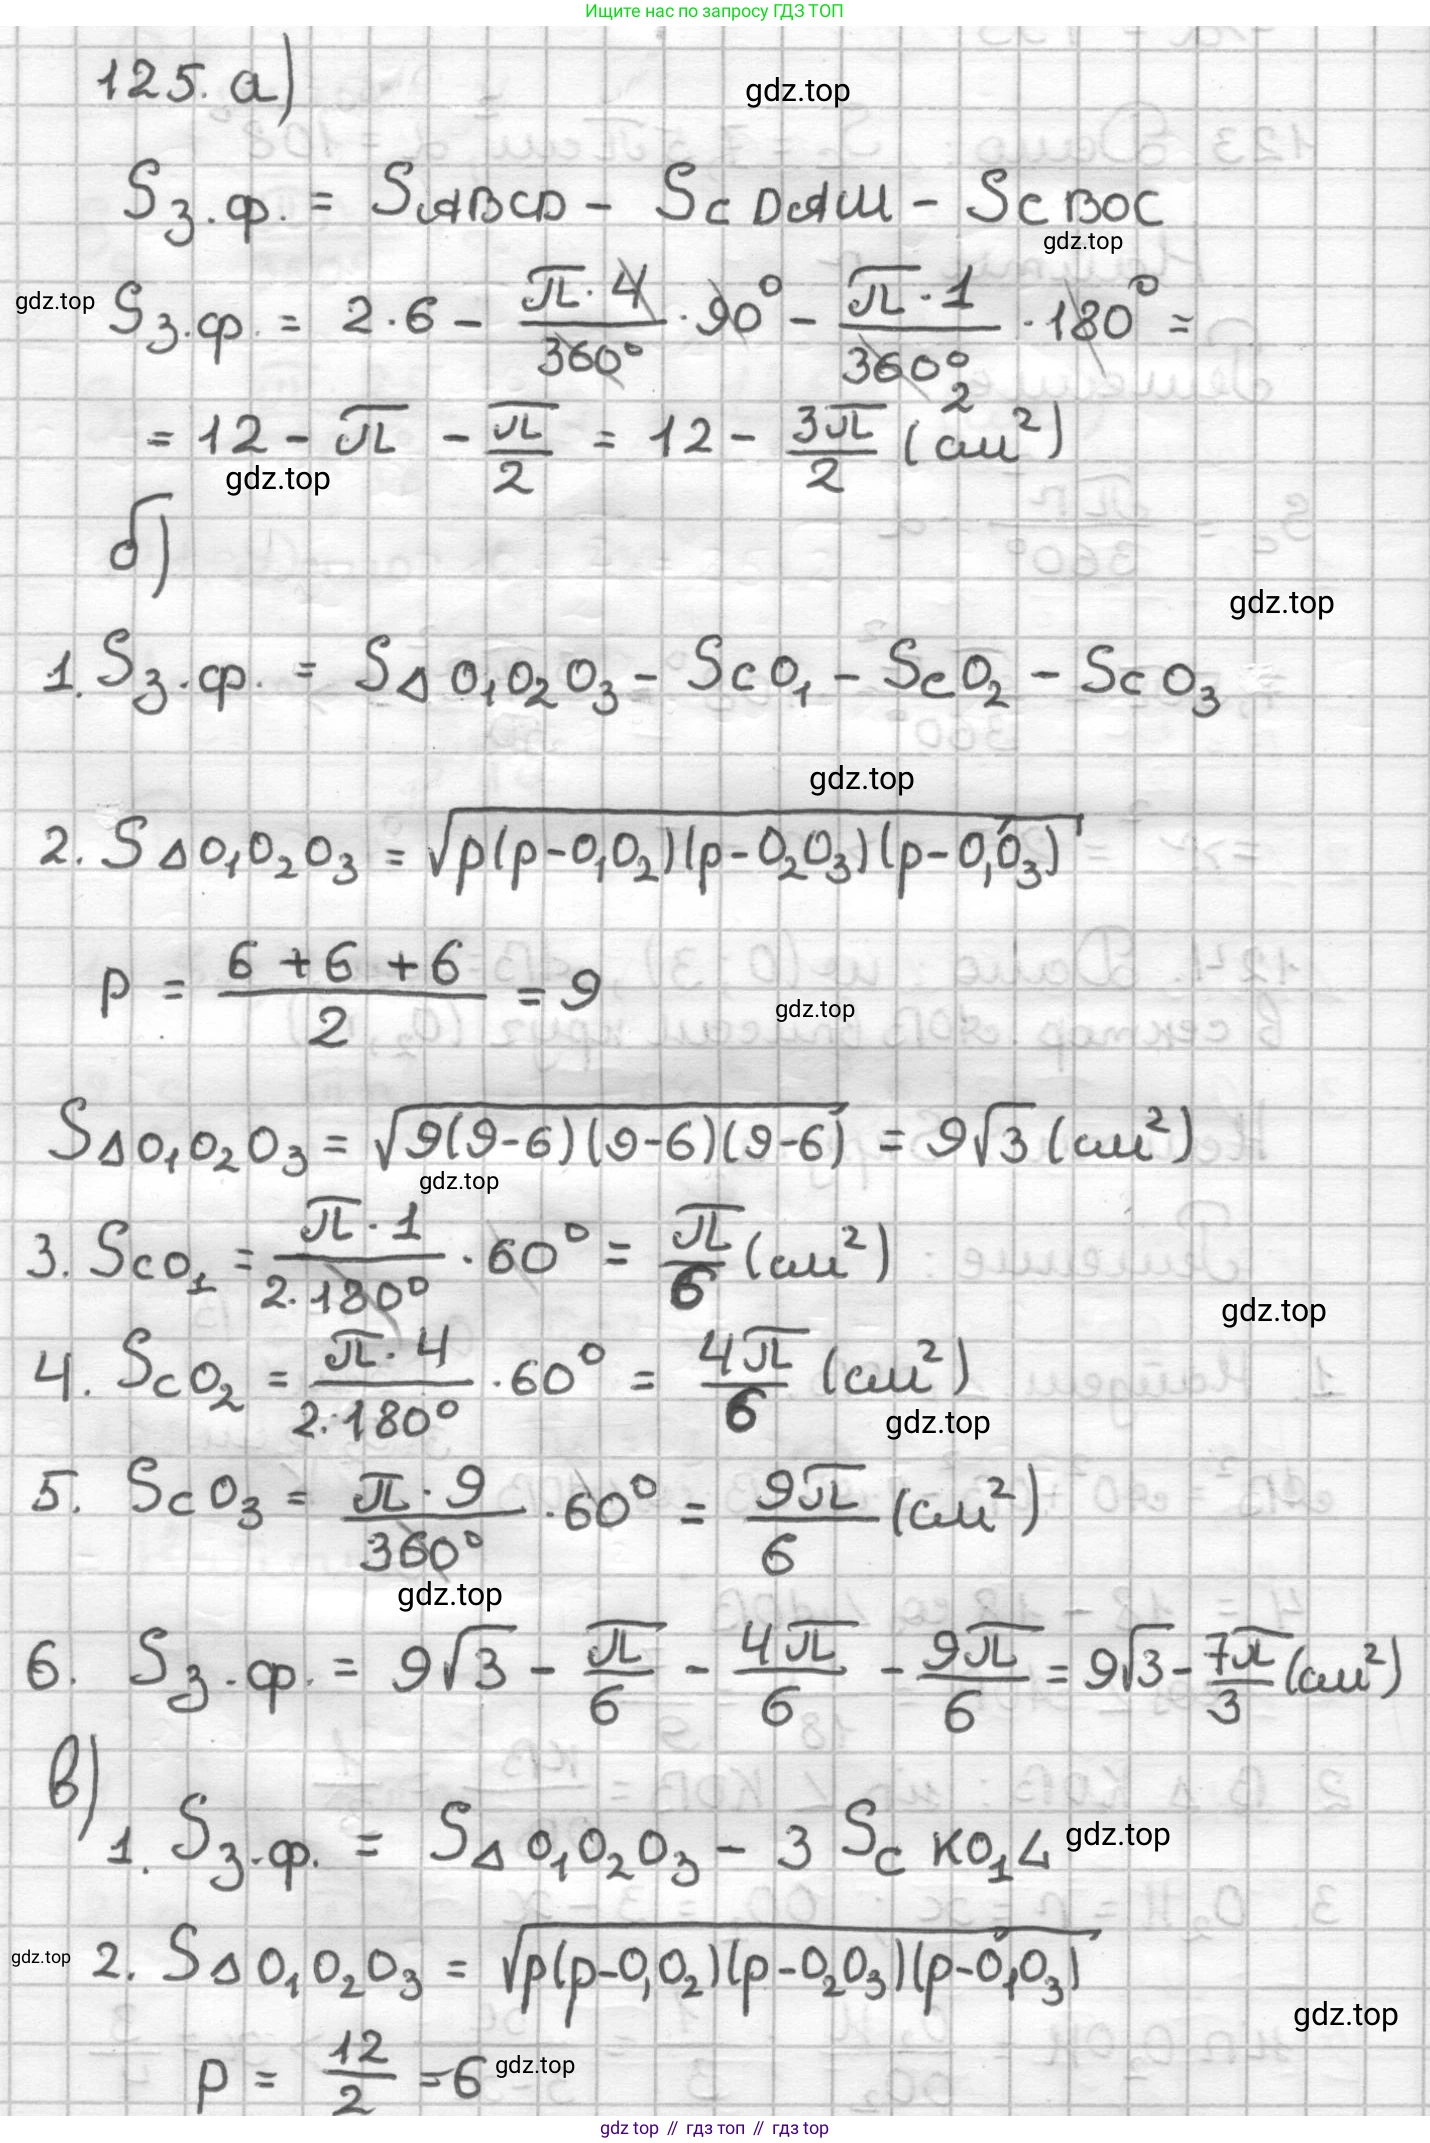 Ищите нас по запросу ГДЗ ТОП
125. а)
gdz.top
Sз.ф. = SABCD - Sс DAM - Sс BOC
gdz.top
gdz.top
Sз.ф. = 2·6 - π·4/360° · 90° - π·1/360° · 180° =
2
= 12 - π - π/2 = 12 - 3π/2 (см²)
gdz.top
б)
gdz.top
1. Sз.ф. = S△O₁O₂O₃ - SсO₁ - SсO₂ - SсO₃
gdz.top
2. S△O₁O₂O₃ = √p(p-O₁O₂)(p-O₂O₃)(p-O₁O₃)
p = 6+6+6/2 = 9
gdz.top
S△O₁O₂O₃ = √9(9-6)(9-6)(9-6) = 9√3 (см²)
gdz.top
3. SсO₁ = π·1/2·180° · 60° = π/6 (см²)
gdz.top
4. SсO₂ = π·4/2·180° · 60° = 4π/6 (см²)
gdz.top
5. SсO₃ = π·9/360° · 60° = 9π/6 (см²)
gdz.top
6. Sз.ф. = 9√3 - π/6 - 4π/6 - 9π/6 = 9√3 - 7π/3 (см²)
в)
1. Sз.ф. = S△O₁O₂O₃ - 3 Sс KO₁L
gdz.top
gdz.top
2. S△O₁O₂O₃ = √p(p-O₁O₂)(p-O₂O₃)(p-O₁O₃)
gdz.top
p = 12/2 = 6
gdz.top
gdz top // гдз топ // gdz top